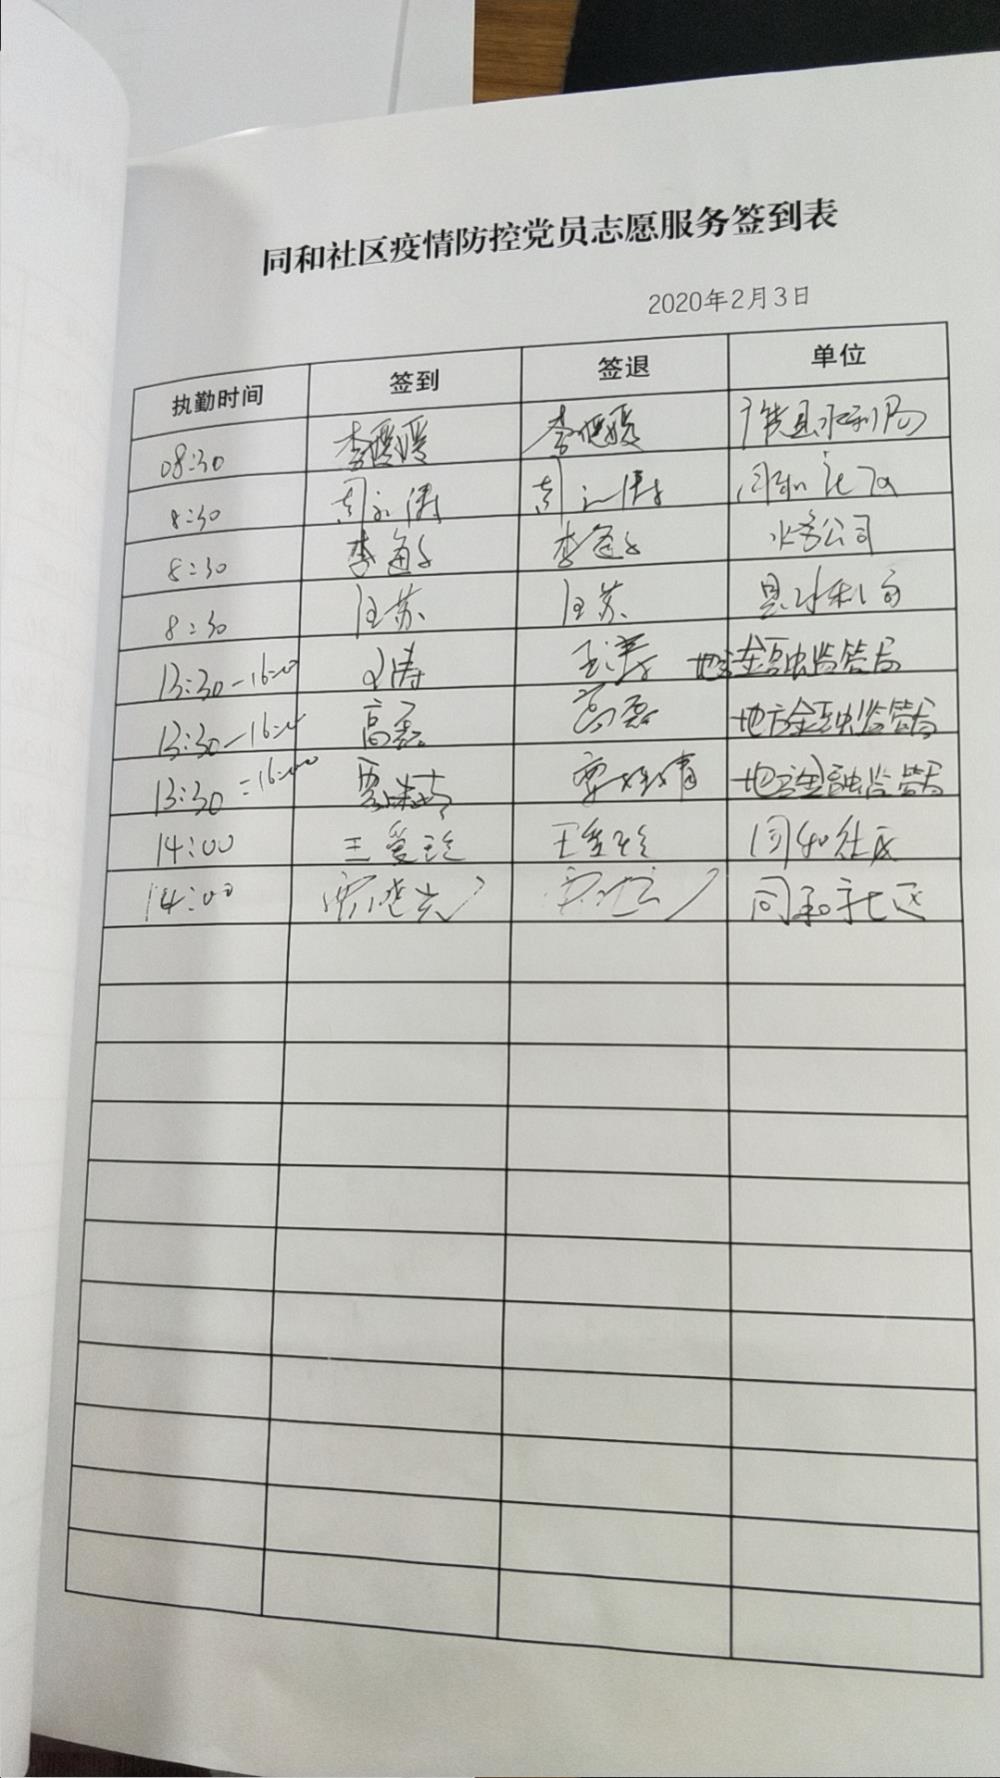 同和社区疫情防控党员志愿服务签到表
2020年2月3日
执勤时间 签到 签退 单位
08:30 李媛媛 李媛媛 县水利局
8:30 周 周 同和社区
8:30 李 李 水务公司
8:30 汪苏 汪苏 县水利局
13:30-16:00 王涛 王涛 地方金融监管局
13:30-16:00 高磊 高磊 地方金融监管局
13:30-16:00 贾 贾 地方金融监管局
14:00 王爱玲 王爱玲 同和社区
14:00 同和社区